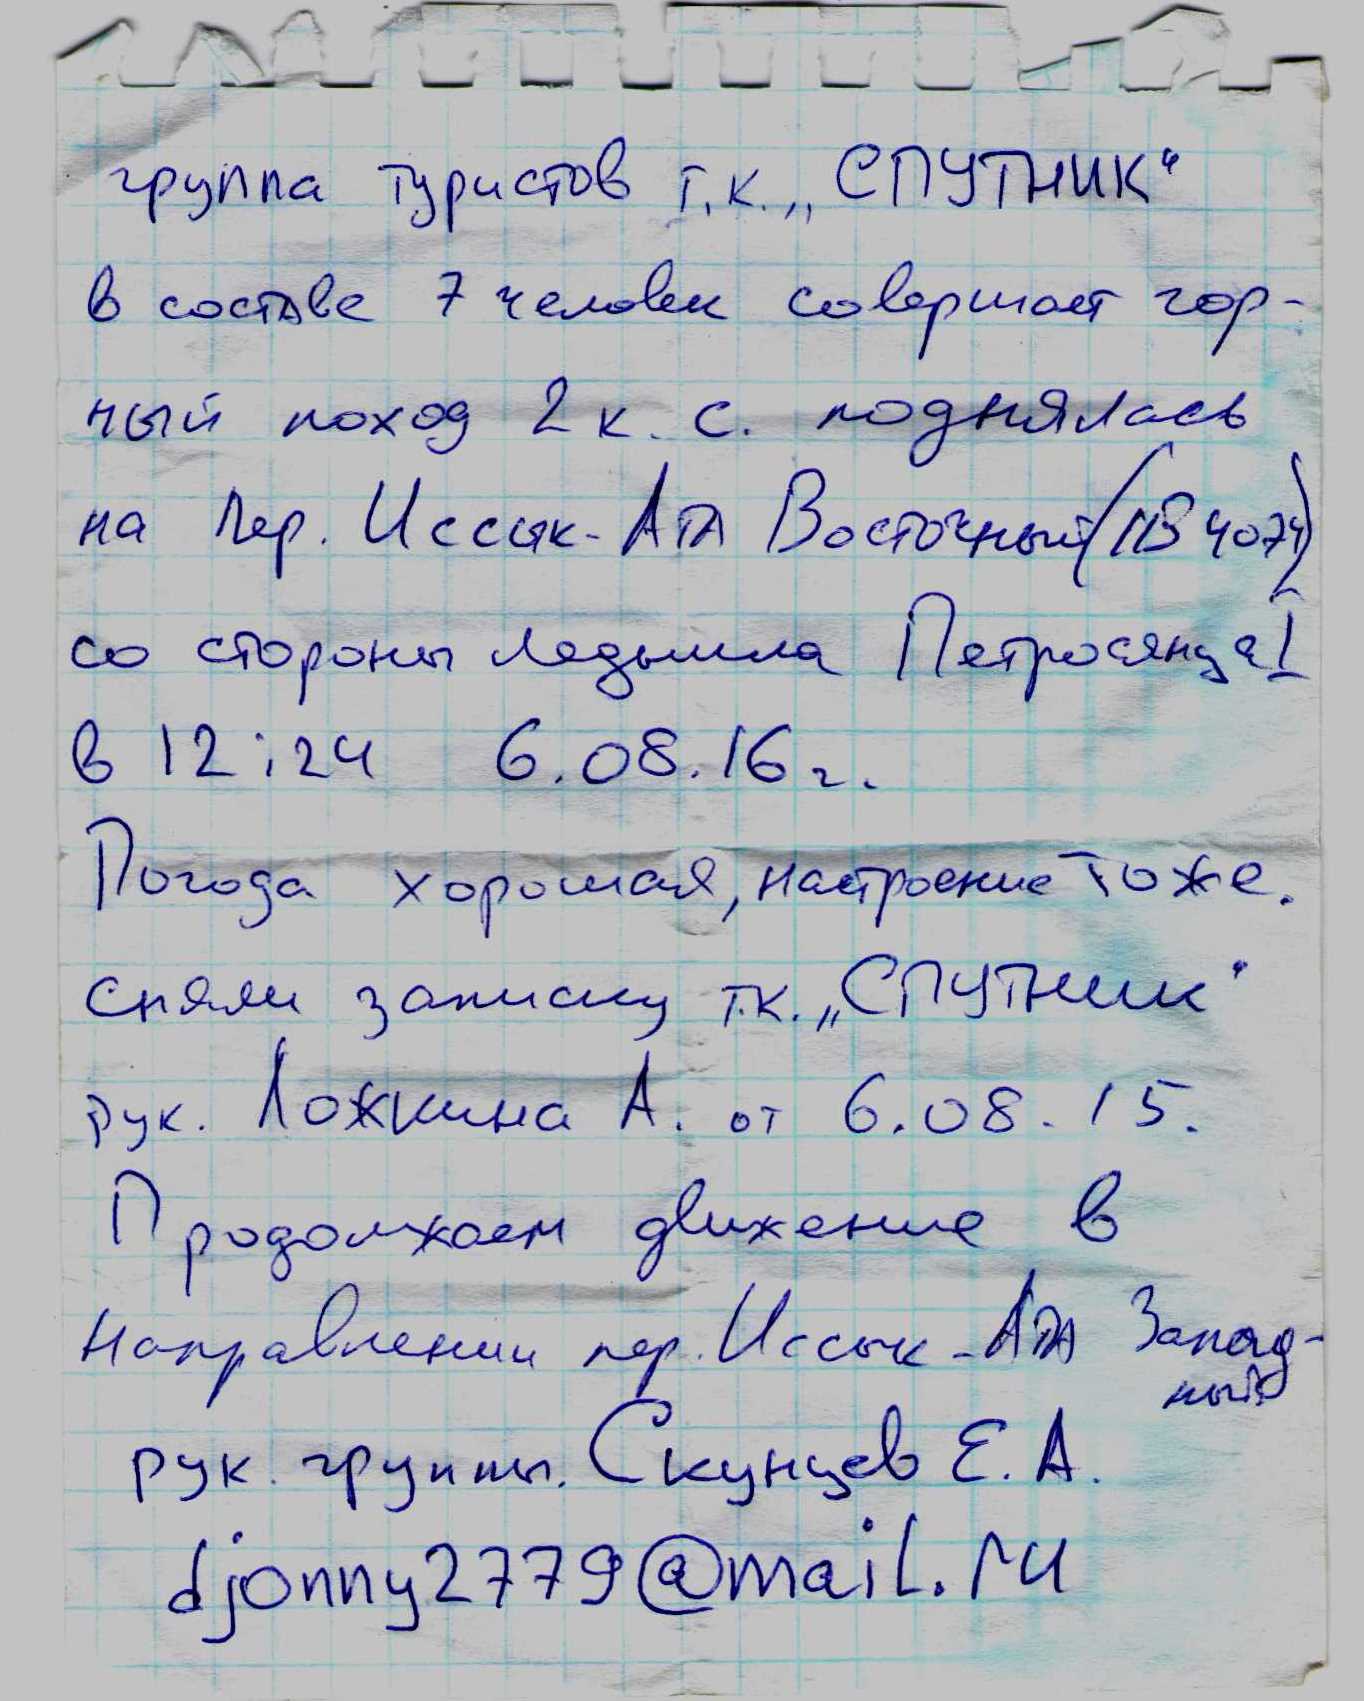 группа туристов т.к. „СПУТНИК“
в составе 7 человек совершает гор-
ный поход 2 к. с. поднялась
на пер. Иссык-Ата Восточный (1Б 4074)
со стороны ледника Петросянца!
в 12:24 6.08.16 г.
Погода хорошая, настроение тоже.
сняли записку т.к. „СПУТНИК“
рук. Ложкина А. от 6.08.15.
Продолжаем движение в
направлении пер. Иссык-Ата Запад-
ный
рук. группы. Скунцев Е.А.
djonny2779@mail.ru